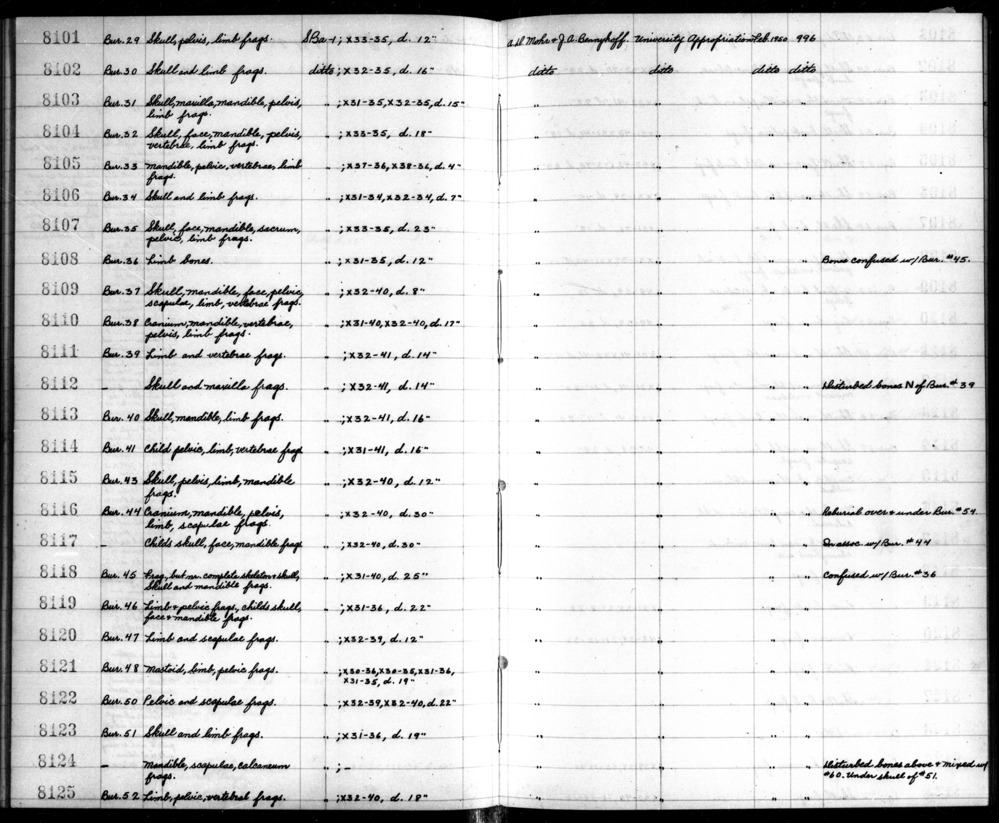 8101 Bur. 29 Skull, pelvis, limb frags. SBa-1; X33-35, d. 12" A.D. Mohr & J.A. Bennyhoff. University Appropriation Feb. 1950 996
8102 Bur. 30 Skull and limb frags. ditto; X32-35, d. 16" ditto ditto ditto ditto
8103 Bur. 31 Skull, maxilla, mandible, pelvis, " ; X31-35, X32-35, d. 15" " " "
limb frags.
8104 Bur. 32 Skull, face, mandible, pelvis, " ; X33-35, d. 18" " " " "
vertebrae, limb frags.
8105 Bur. 33 Mandible, pelvic, vertebrae, limb " ; X37-36, X38-36, d. 4" " " " "
frags.
8106 Bur. 34 Skull and limb frags. " ; X31-34, X32-34, d. 7" " " " "
8107 Bur. 35 Skull, face, mandible, sacrum, " ; X33-35, d. 23" " " " "
pelvic, limb frags.
8108 Bur. 36 Limb bones. " ; X31-35, d. 12" " " " " Bones confused w/ Bur. #45.
8109 Bur. 37 Skull, mandible, face, pelvic, " ; X32-40, d. 8" " " " "
scapulae, limb, vertebrae frags.
8110 Bur. 38 Cranium, mandible, vertebrae, " ; X31-40, X32-40, d. 17" " " " "
pelvis, limb frags.
8111 Bur. 39 Limb and vertebrae frags. " ; X32-41, d. 14" " " " "
8112 – Skull and maxilla frags. " ; X32-41, d. 14" " " " " Disturbed bones N of Bur. #39
8113 Bur. 40 Skull, mandible, limb frags. " ; X32-41, d. 16" " " " "
8114 Bur. 41 Child pelvic, limb, vertebrae frags " ; X31-41, d. 16" " " " "
8115 Bur. 43 Skull, pelvis, limb, mandible " ; X32-40, d. 12" " " " "
frags.
8116 Bur. 44 Cranium, mandible, pelvis, " ; X32-40, d. 30" " " " " Reburial over & under Bur. #54.
limb, scapulae frags.
8117 – Childs skull, face, mandible frags " ; X32-40, d. 30" " " " " In assoc w/ Bur. #44
8118 Bur. 45 Frag. but nr. complete skeleton & skull, " ; X31-40, d. 25" " " " " Confused w/ Bur. #36
Skull and mandible frags.
8119 Bur. 46 Limb & pelvic frags, childs skull, " ; X31-36, d. 22" " " " "
face & mandible frags.
8120 Bur. 47 Limb and scapulae frags. " ; X32-39, d. 12" " " " "
8121 Bur. 48 Mastoid, limb, pelvic frags. " ; X30-36, X30-35, X31-36, " " " "
X31-35, d. 19"
8122 Bur. 50 Pelvic and scapulae frags. " ; X32-39, X32-40, d. 22" " " " "
8123 Bur. 51 Skull and limb frags. " ; X31-36, d. 19" " " " "
8124 – Mandible, scapulae, calcaneum " ; – " " " " Disturbed bones above & mixed w/
frags. #60. Under skull of #51.
8125 Bur. 52 Limb, pelvic, vertebral frags. " ; X32-40, d. 18" " " " "